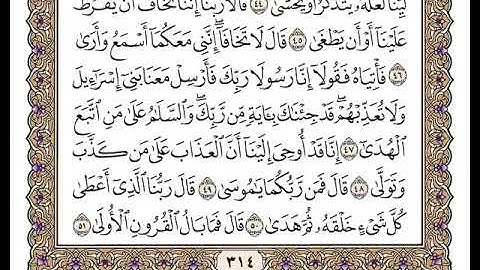 لَّيِّنًا لَّعَلَّهُۥ يَتَذَكَّرُ أَوۡ يَخۡشَىٰ ٤٤ قَالَا رَبَّنَآ إِنَّنَا نَخَافُ أَن يَفۡرُطَ
عَلَيۡنَآ أَوۡ أَن يَطۡغَىٰ ٤٥ قَالَ لَا تَخَافَآۖ إِنَّنِي مَعَكُمَآ أَسۡمَعُ وَأَرَىٰ
٤٦ فَأۡتِيَاهُ فَقُولَآ إِنَّا رَسُولَا رَبِّكَ فَأَرۡسِلۡ مَعَنَا بَنِيٓ إِسۡرَٰٓءِيلَ
وَلَا تُعَذِّبۡهُمۡۖ قَدۡ جِئۡنَٰكَ بِـَٔايَةٖ مِّن رَّبِّكَۖ وَٱلسَّلَٰمُ عَلَىٰ مَنِ ٱتَّبَعَ
ٱلۡهُدَىٰٓ ٤٧ إِنَّا قَدۡ أُوحِيَ إِلَيۡنَآ أَنَّ ٱلۡعَذَابَ عَلَىٰ مَن كَذَّبَ
وَتَوَلَّىٰ ٤٨ قَالَ فَمَن رَّبُّكُمَا يَٰمُوسَىٰ ٤٩ قَالَ رَبُّنَا ٱلَّذِيٓ أَعۡطَىٰ
كُلَّ شَيۡءٍ خَلۡقَهُۥ ثُمَّ هَدَىٰ ٥٠ قَالَ فَمَا بَالُ ٱلۡقُرُونِ ٱلۡأُولَىٰ ٥١
٣١٤